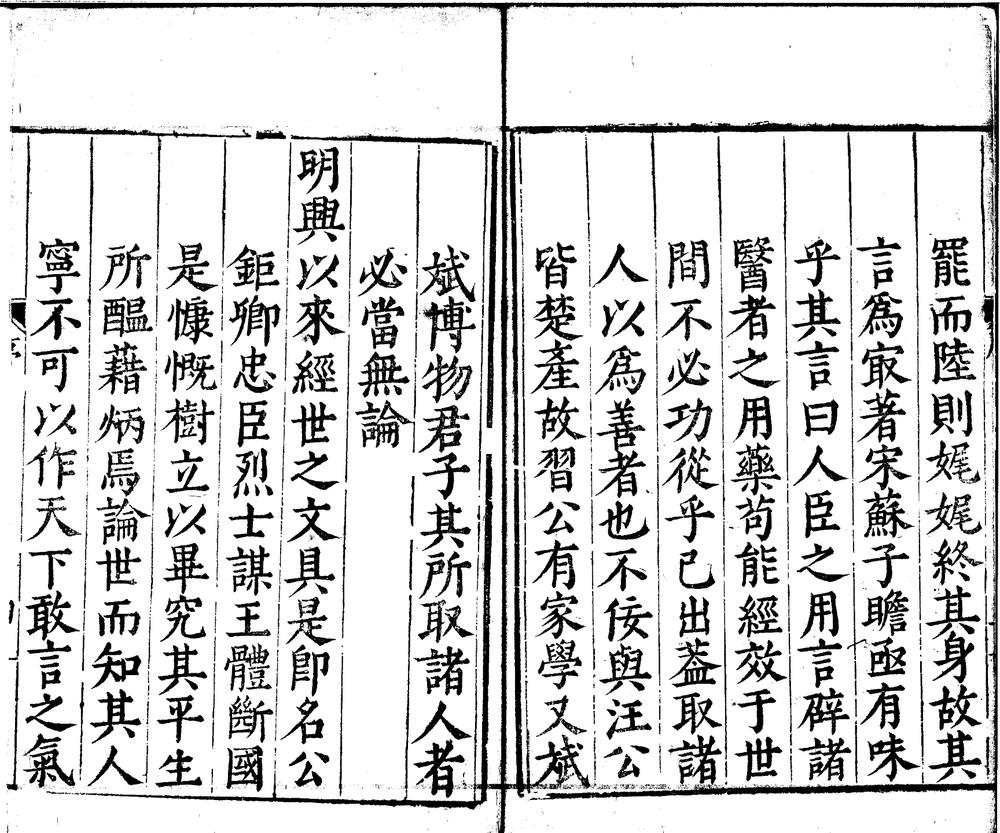 罷而陸則娓娓終其身故其
言為㝡著宋蘇子瞻亟有味
乎其言曰人臣之用言辟諸
醫者之用藥茍能經效于世
間不必功從乎已出葢取諸
人以為善者也不佞與汪公
皆楚產故習公有家學又斌
斌博物君子其所取諸人者
必當無論
明興以來經世之文具是卽名公
鉅卿忠臣烈士謀王體斷國
是慷慨樹立以畢究其平生
所醞藉炳焉論世而知其人
寧不可以作天下敢言之氣